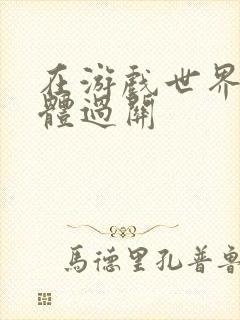 在游戏世界
體過關
馬德里孔普魯